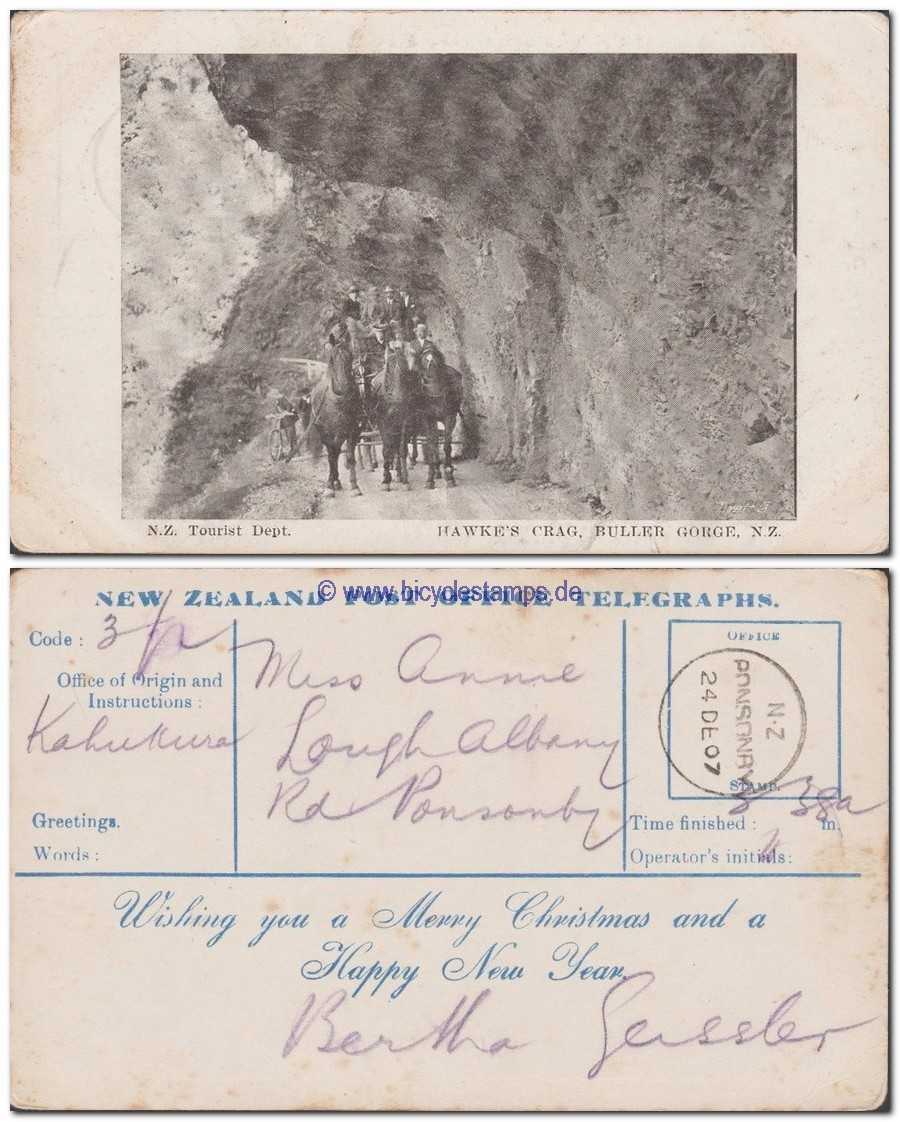 N.Z. Tourist Dept. HAWKE'S CRAG, BULLER GORGE, N.Z.
© www.bicyclestamps.de
NEW ZEALAND POST OFFICE TELEGRAPHS.
Code :
Office of Origin and
Instructions :
Kahukura
Greetings.
Words :
Miss Annie
Lough Albany
Rd Ponsonby
OFFICE
N.Z
PONSONBY
24 DE 07
STAMP.
Time finished : m.
Operator's initials:
Wishing you a Merry Christmas and a
Happy New Year.
Bertha Geissler